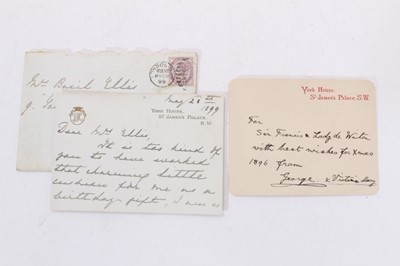 Mrs Basil Ellis
9.
May 28th
1899
York House,
St James's Palace,
S.W.
Dear Mrs Ellis,
It is too kind of
you to have worked
that charming little
for me as a
birthday gift, I was so
York House,
St James's Palace, S.W.
For
Sir Francis & Lady de Winton
with best wishes for Xmas
1896 from
George. & Victoria Mary